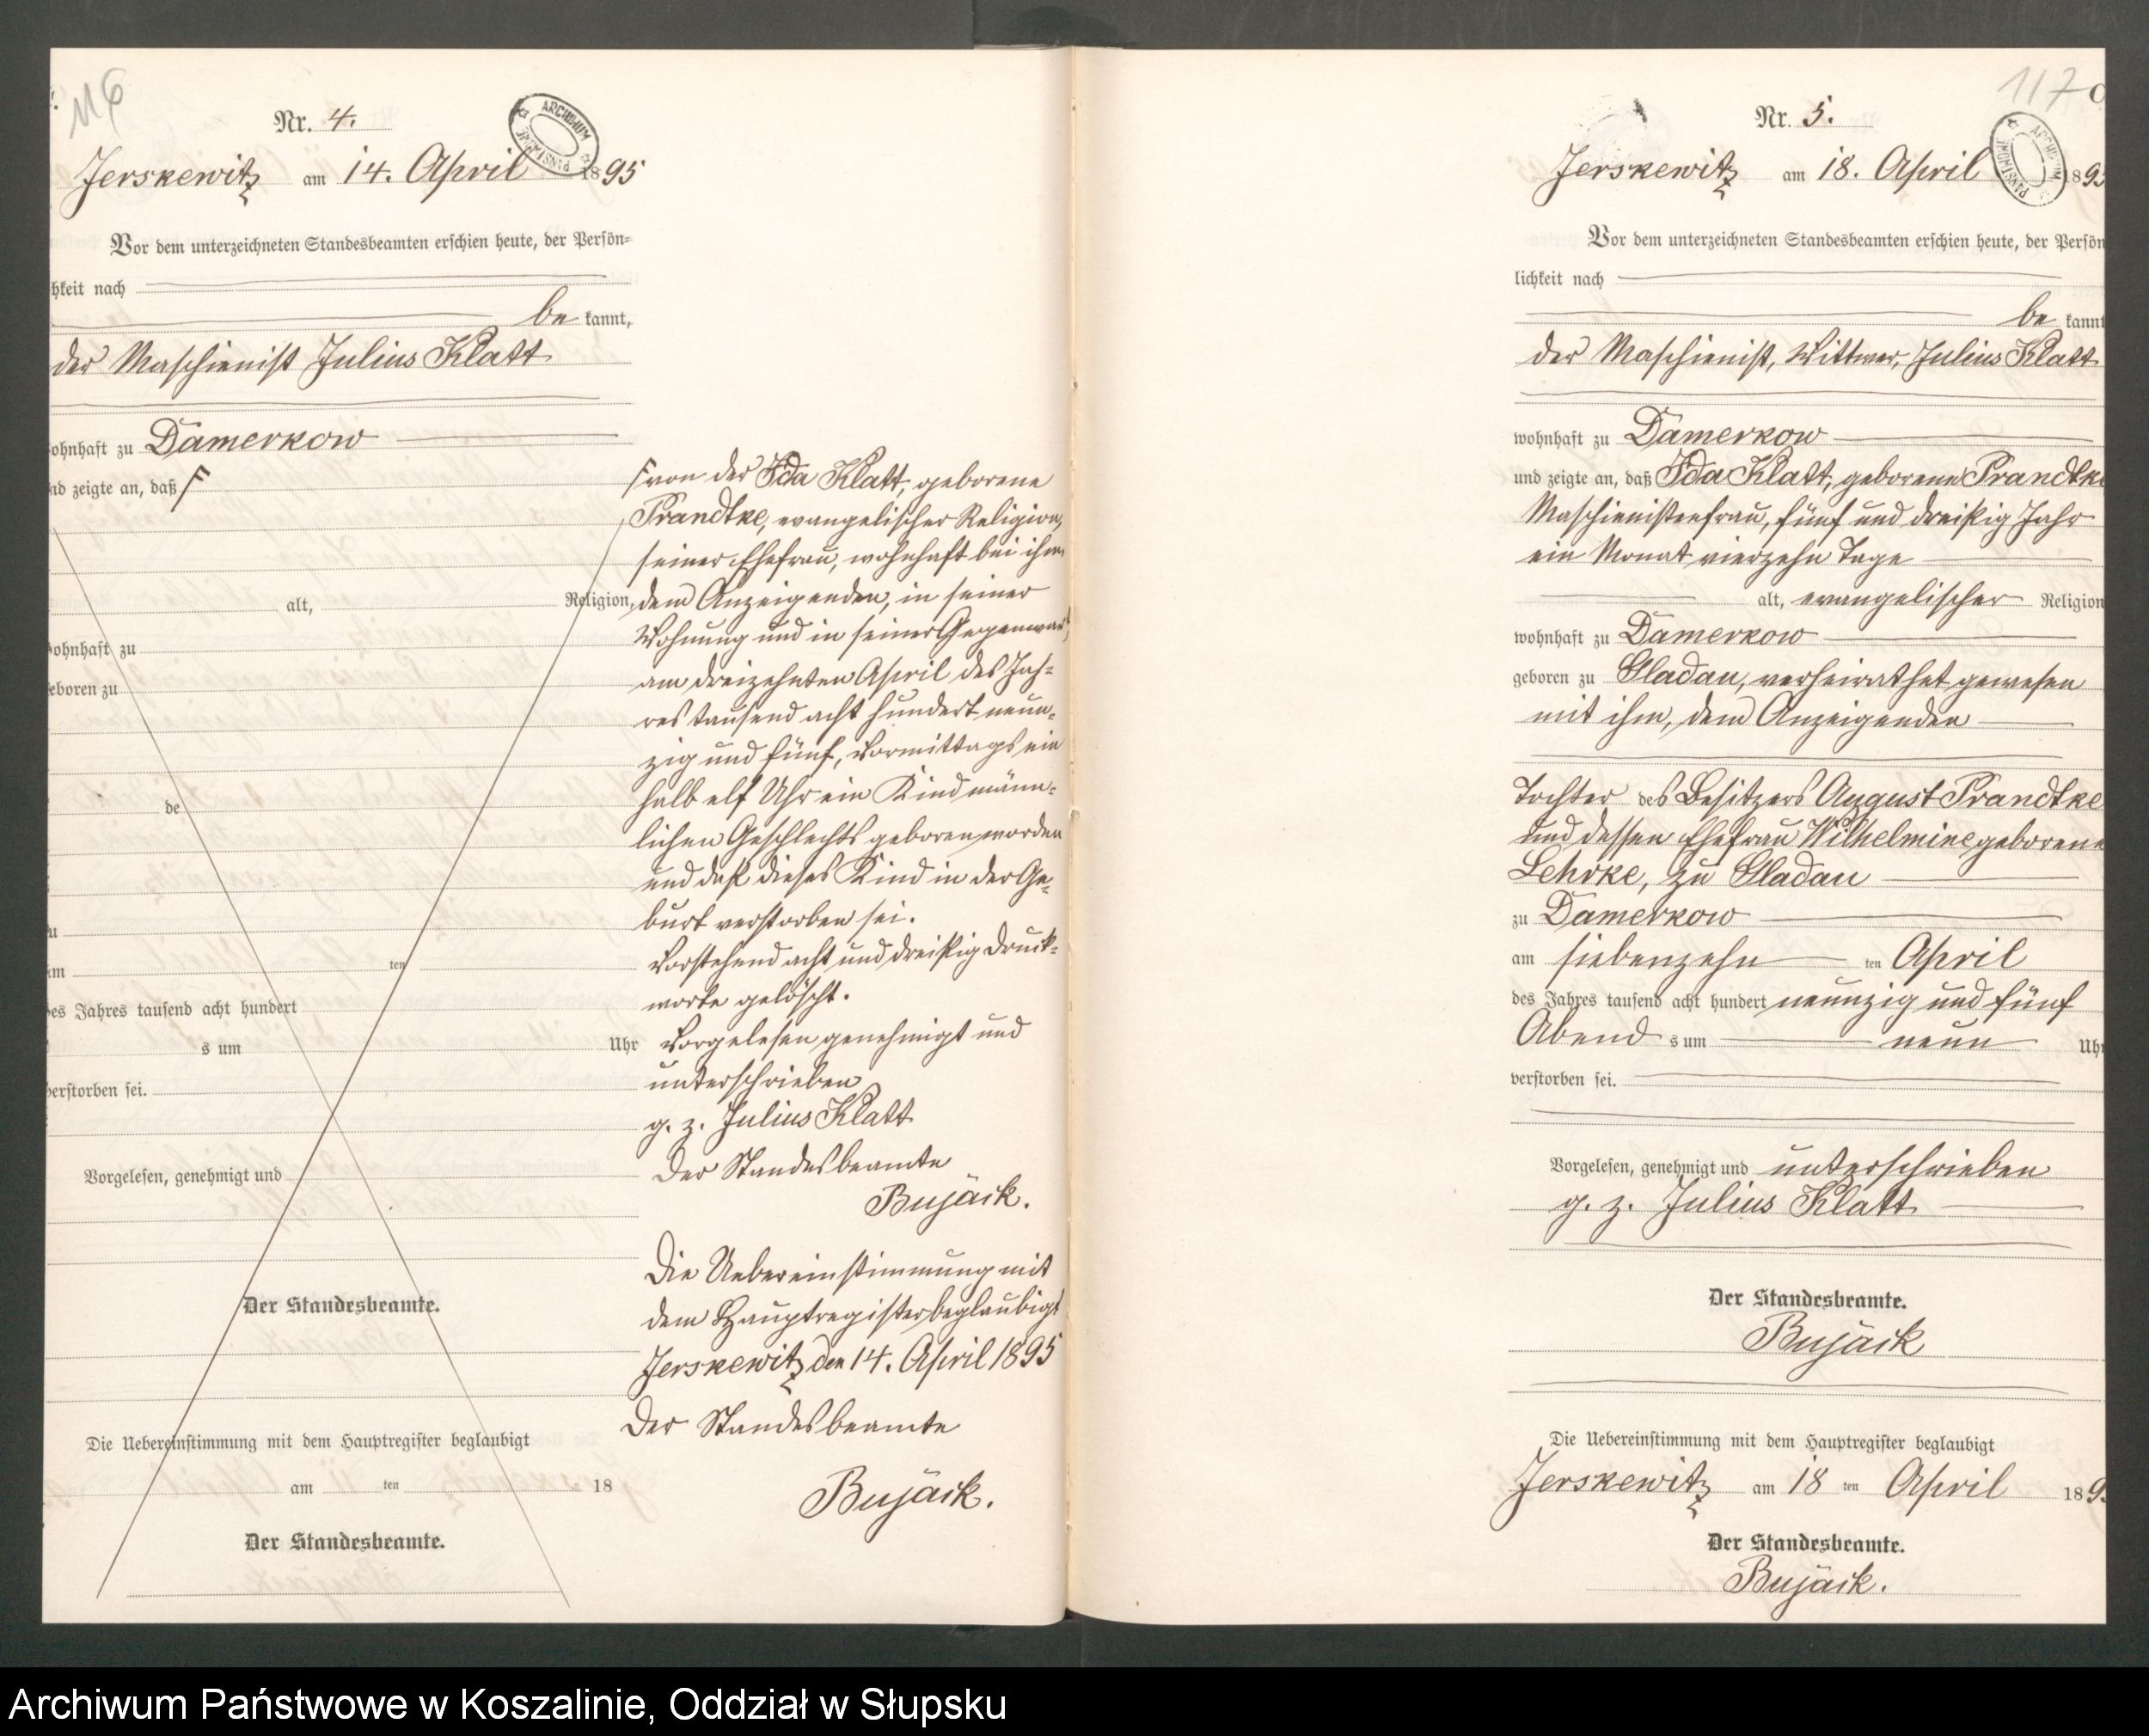 116
Nr. 4.
ARCHIWUM PAŃSTWOWE
Jerskewitz am 14. April 1895
Vor dem unterzeichneten Standesbeamten erschien heute, der Persön=
hkeit nach
be kannt,
der Maschienist Julius Klatt
ohnhaft zu Damerkow
nd zeigte an, daß F
alt, Religion,
ohnhaft zu
eboren zu
de
u
am ten
es Jahres tausend acht hundert
s um Uhr
verstorben sei.
Vorgelesen, genehmigt und
Der Standesbeamte.
Die Uebereinstimmung mit dem Hauptregister beglaubigt
am ten 18
Der Standesbeamte.
F von der Ida Klatt, geborene
Prandtke, evangelischer Religion,
seiner Ehefrau, wohnhaft bei ihm
dem Anzeigenden, in seiner
Wohnung und in seiner Gegenwart,
am dreizehnten April des Jah=
res tausend acht hundert neun=
zig und fünf, Vormittags ein
halb elf Uhr ein Kind männ=
lichen Geschlechts geboren worden
und daß dieses Kind in der Ge=
burt verstorben sei.
Vorstehend acht und dreißig Druck=
worte gelöscht.
Vorgelesen genehmigt und
unterschrieben
g. z. Julius Klatt
Der Standesbeamte
Bujack.
Die Uebereinstimmung mit
dem Hauptregister beglaubigt
Jerskewitz den 14. April 1895
Der Standesbeamte
Bujack.
117
Nr. 5.
ARCHIWUM PAŃSTWOWE
Jerskewitz am 18. April 1895
Vor dem unterzeichneten Standesbeamten erschien heute, der Persön
lichkeit nach
be kannt
der Maschienist, Wittwer, Julius Klatt
wohnhaft zu Damerkow
und zeigte an, daß Ida Klatt, geborene Prandtke
Maschienistenfrau, fünf und dreißig Jahr
ein Monat vierzehn Tage
alt, evangelischer Religion
wohnhaft zu Damerkow
geboren zu Gladau, verheirathet gewesen
mit ihm, dem Anzeigenden
Tochter des Besitzers August Prandtke
und dessen Ehefrau Wilhelmine geborene
Lehrke, zu Gladau
zu Damerkow
am siebenzehn ten April
des Jahres tausend acht hundert neunzig und fünf
Abend s um neun Uhr
verstorben sei.
Vorgelesen, genehmigt und unterschrieben
g. z. Julius Klatt
Der Standesbeamte.
Bujack
Die Uebereinstimmung mit dem Hauptregister beglaubigt
Jerskewitz am 18 ten April 189
Der Standesbeamte.
Bujack.
Archiwum Państwowe w Koszalinie, Oddział w Słupsku